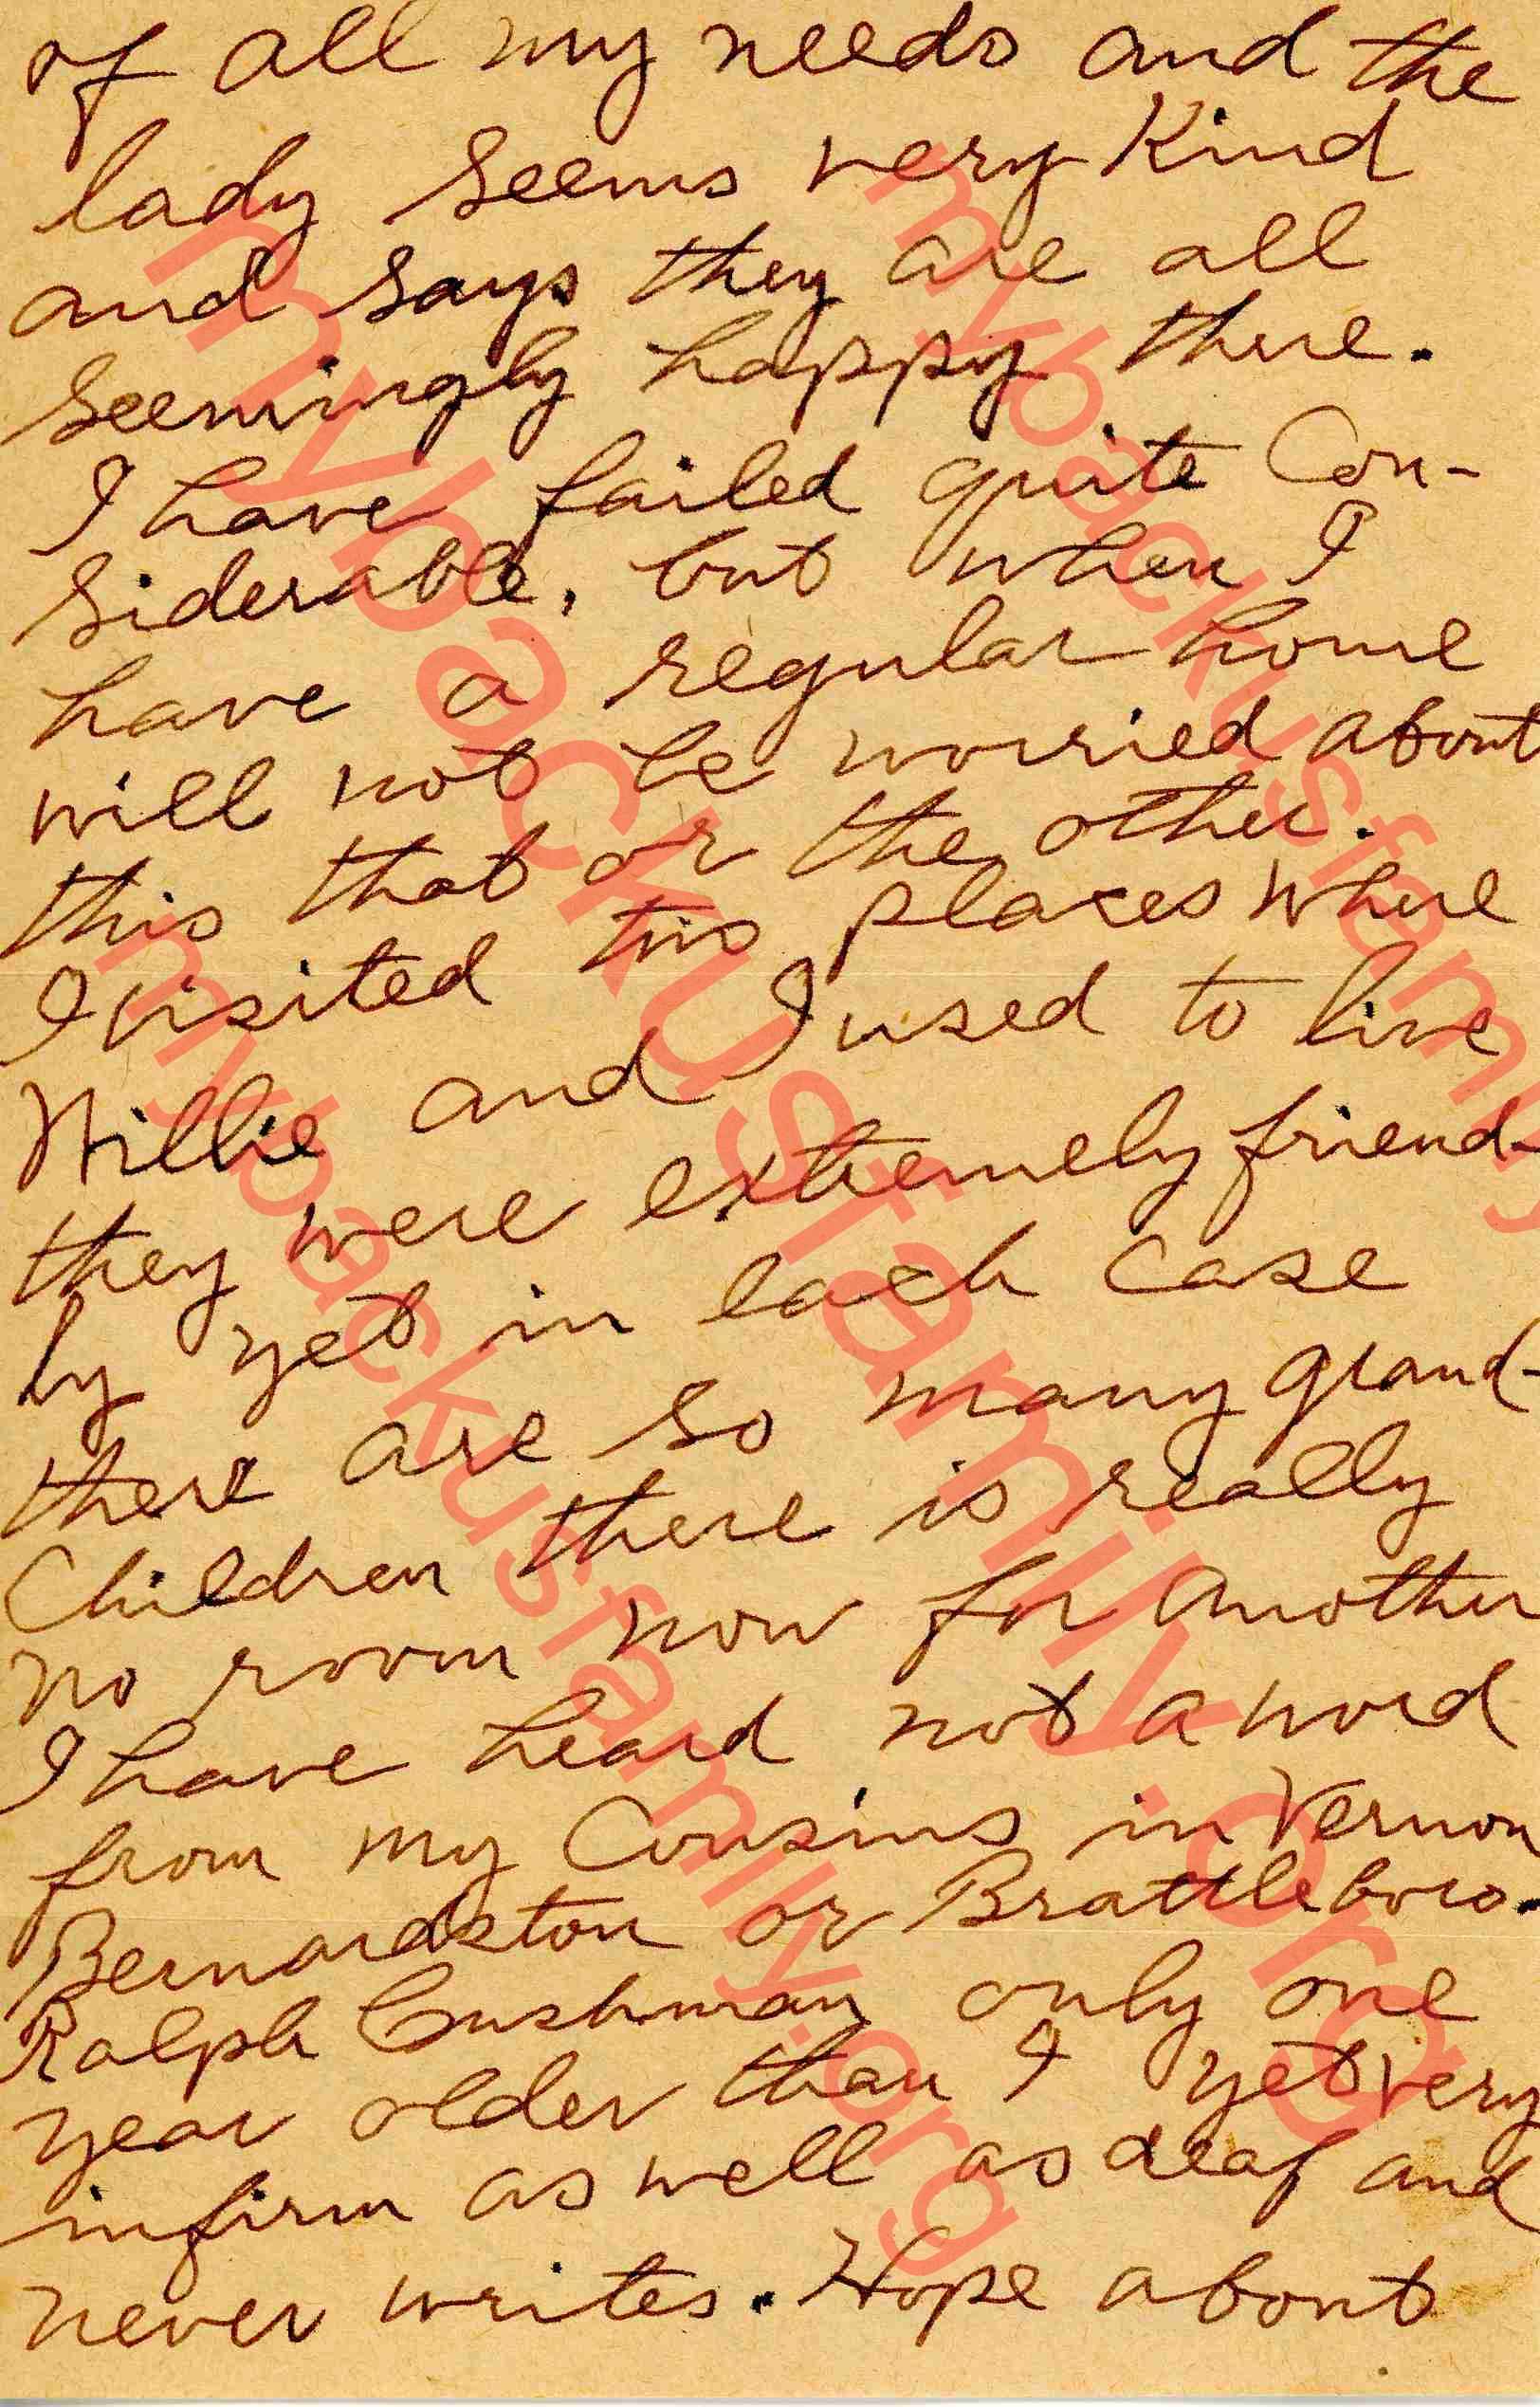 of all my needs and the
lady seems very kind
and says they are all
seemingly happy there.
I have failed quite Con-
siderable, but when I
have a regular home
will not be worried about
this that or the other.
I visited two places where
Willie and I used to live
they were extremely friend-
ly yet in each case
there are so many grand-
Children there is really
no room now for another
I have heard not a word
from my Cousins in Vernon
Bernardston or Brattleboro.
Ralph Cushman only one
year older than I yet very
infirm as well as deaf and
never writes. Hope about
mybackusfamily.org
mybackusfamily.org
mybackusfamily.org